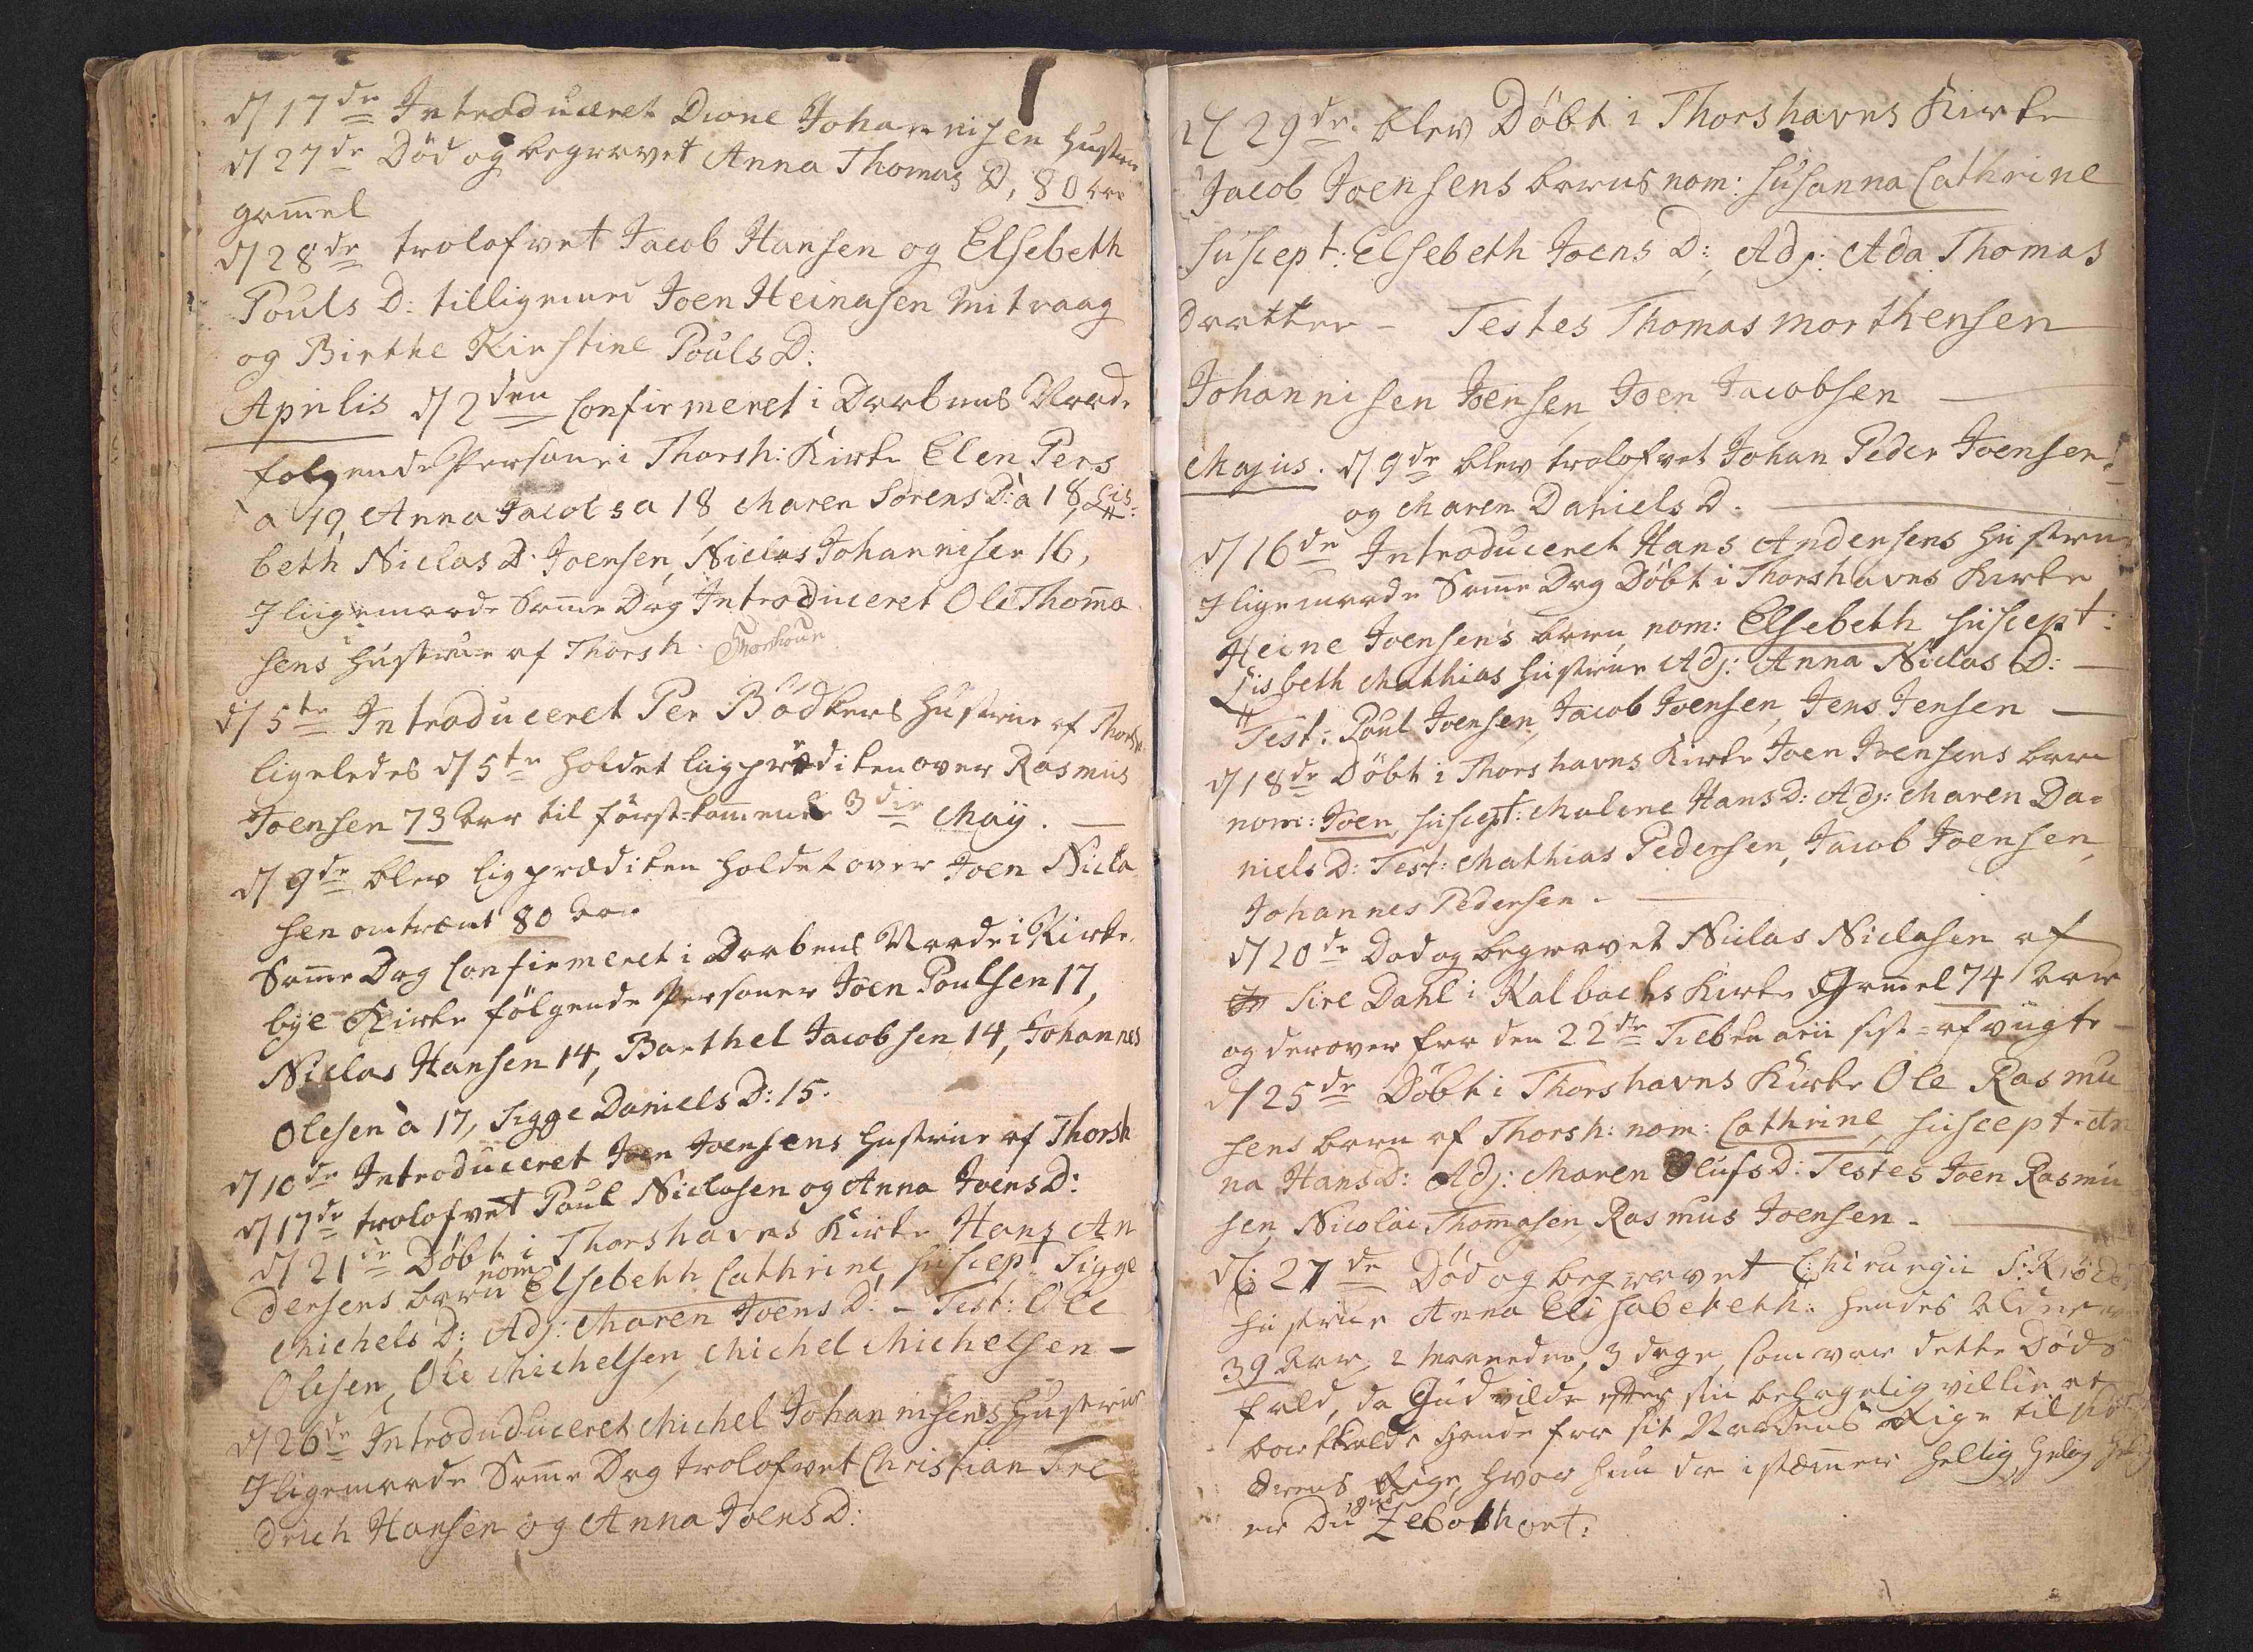 d/ 17de Introduceret Dione Johannisen Hustrue
d/ 27de Död og begravet Anna Thomas D, 80 Aar
gam̄el
d/ 28de trolofvet Jacob Hansen og Elsebeth
Pouls D: tilligemed Joen Heinasen Mitvaag
og Birthe Kirstine Pouls D:
Aprilis d/ 2den Confirmeret i Daabens Naade
folgende Personer i Thorsh: Kirke Elen Pers
a 19, Anna Jacobs a 18, Maren Sörens D: a 18, Lis-
beth Niclas D. Joensen, Niclas Johannisen 16,
Iligemaade Sam̄e Dag Introduceret Ole Thom̄a
sens Hustrue af Thorsh.
d/ 5te Introduceret Per Bödkers Hustrue af Thorsh
ligeledes d/ 5te holdet liigprædiken over Rasmus
Joensen 73 Aar til först-kom̄ende 3die Maÿ. —
d/ 9de blev ligprædiken holdet over Joen Nicla
sen omtrent 80 Aar
Sam̄e Dag Confirmeret i Daabens Naade i Kirke
bÿe Kirke fölgende Personer Joen Poulsen 17,
Niclas Hansen 14, Barthel Jacobsen 14, Johannes
Olesen a 17, Sigge Daniels D: 15.
d/ 10de Introduceret Joen Joensens Hustrue af Thorsh
d/ 17de trolofvet Poul Niclasen og Anna Joens D:
d/ 21de Döbt i Thorshavns Kirke Hans An
dersens barn nom Elsebeth Cathrine, suscept Sigge
Michels D: Adj: Maren Joens D: - Test: Ole
Olesen, Ole Michelsen, Michel Michelsen —
d/ 26de Introduduceret Michel Johannisens Hustrue
Iligemaade Sam̄e Dag trolofvet Christian Fre
drich Hansen og Anna Joens D:
d/ 29de blev Döbt i Thorshavns Kirke
Jacob Joensens barns nom: Susanna Cathrine
suscept: Elsebeth Joens D: Adj: Ada Thomas
Daatter - Testes Thomas Morthensen
Johannisen Joensen, Joen Jacobsen —
Majus. d/ 9de blev trolofvet Johan Peder Joensen
og Maren Daniels D. —
d/ 16de Introduceret Hans Andersens Hustrue
Iligemaade Sam̄e Dag Döbt i Thorshavns Kirke
Heine Joensens barn, nom: Elsebeth, suscept:
Lisbeth Mathias Hustrue Adj: Anna Niclas D: —
Test: Poul Joensen, Jacob Joensen, Jens Jensen —
d/ 18de Döbt i Thorshavns Kirke Joen Joensens barn
nom: Joen suscept: Malene Hans D: Adj: Maren Da-
niels D: Test: Mathias Pedersen, Jacob Joensen,
Johannes Pedersen. —
d/ 20de Död og begravet Niclas Niclasen af
Sire Dahl i Kalbachs Kirke Gam̄el 74 Aar
og derover fra den 22de Februarii sist-afvigte —
d/ 25de Döbt i Thorshavns Kirke Ole Rasmu
sens barn af Thorsh: nom: Cathrine, suscept: An
na Hans D: Adj: Maren Olufs D: Testes Joen Rasmu
sen, Nicolai Thomasen, Rasmus Joensen. —
d/: 27de Död og begravet Chirurgii S:
Hustrue Anna Elisabeteth: hendes Alder
39 Aar, 2 Maaneder, 3 dage, som var dette Döds
fald, da Gud vilde efter sin behagelig villie at
bortkalde hende fra sit Naadens Rige til sit
Ærens Rige, hvor hun da istem̄er hellig, helig
er Du Gud Zebaoth ort: